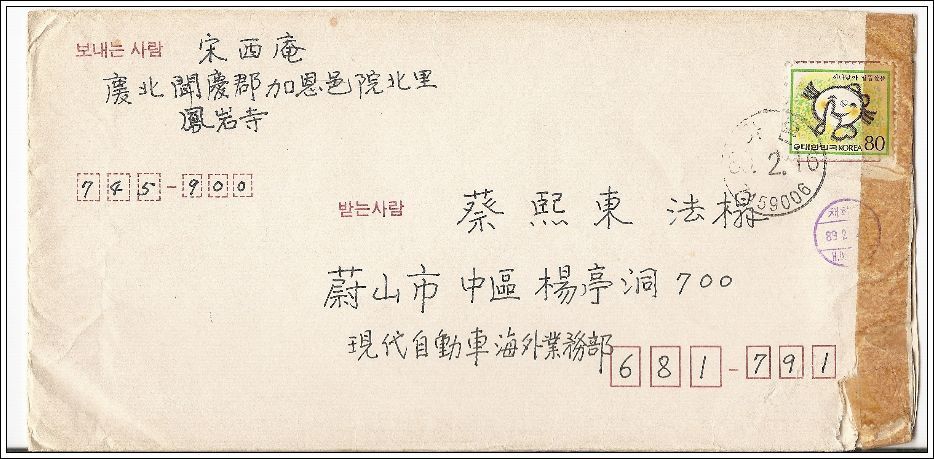 보내는 사람 宋西庵
慶北聞慶郡加恩邑院北里
鳳岩寺
745-900
대한민국 KOREA 80
2.16
59006
받는사람 蔡熙東 法榻
89 2
蔚山市 中區 楊亭洞 700
現代自動車海外業務部
681-791